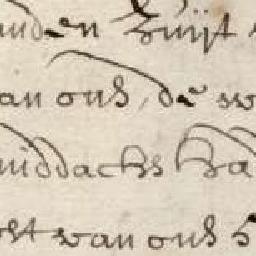 anden Zuijt
van ons, de w
middachs Ha
ost van ons 5